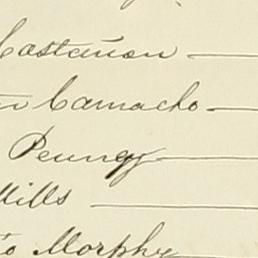 Castañon
Camacho
Penney
Mills
Morphy